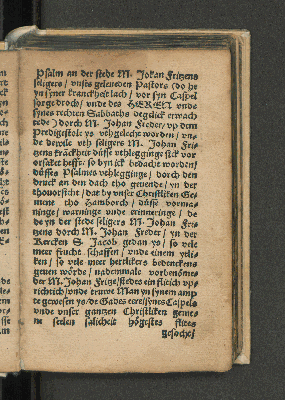 Psalm an der stede M. Johan Fritzens
seligers / vnses geleueden Pastors (do he
yn syner kranckheit lach / vor syn Caspel
sorgedroch / vnde des HEREN vnde
synes rechten Sabbaths degelick erwach
tede) dorch M. Johan Freder / vp dem
Predigestole ys vthgelecht worden / vnde
de dewile des seligers M. Johan Fritzens
kranckheit düsse vthlegginge sick vor
orsaket hefft / so byn ick bedacht worden /
düsses Psalmes vthlegginge / dorch den
drück an den dach tho geuende / yn der
thouorsicht / dat by vnser Christliken Gemene
tho Hamborch / düsse vorma-
ninge / warninge vnde erinneringe / de
de yn der stede seligers M. Johan Fritzens
dorch M. Johan Freder / yn der
Kercken S. Jacob gedan ys / so vele
meer frucht schaffen / vnde einem ydtliken
/ so vele meer hertlikers bedenckens
geuen wörde / nademmale vorbenömer
M. Johan Fritze / stedes ein flitich vp-
richtich / vnde truwe Man yn synem amp
te gewesen ys / de Gades eere / synes Caspels
vnde vnser gantzen Christliken gemei-
n seelen salicheit högestes flites
gesocht